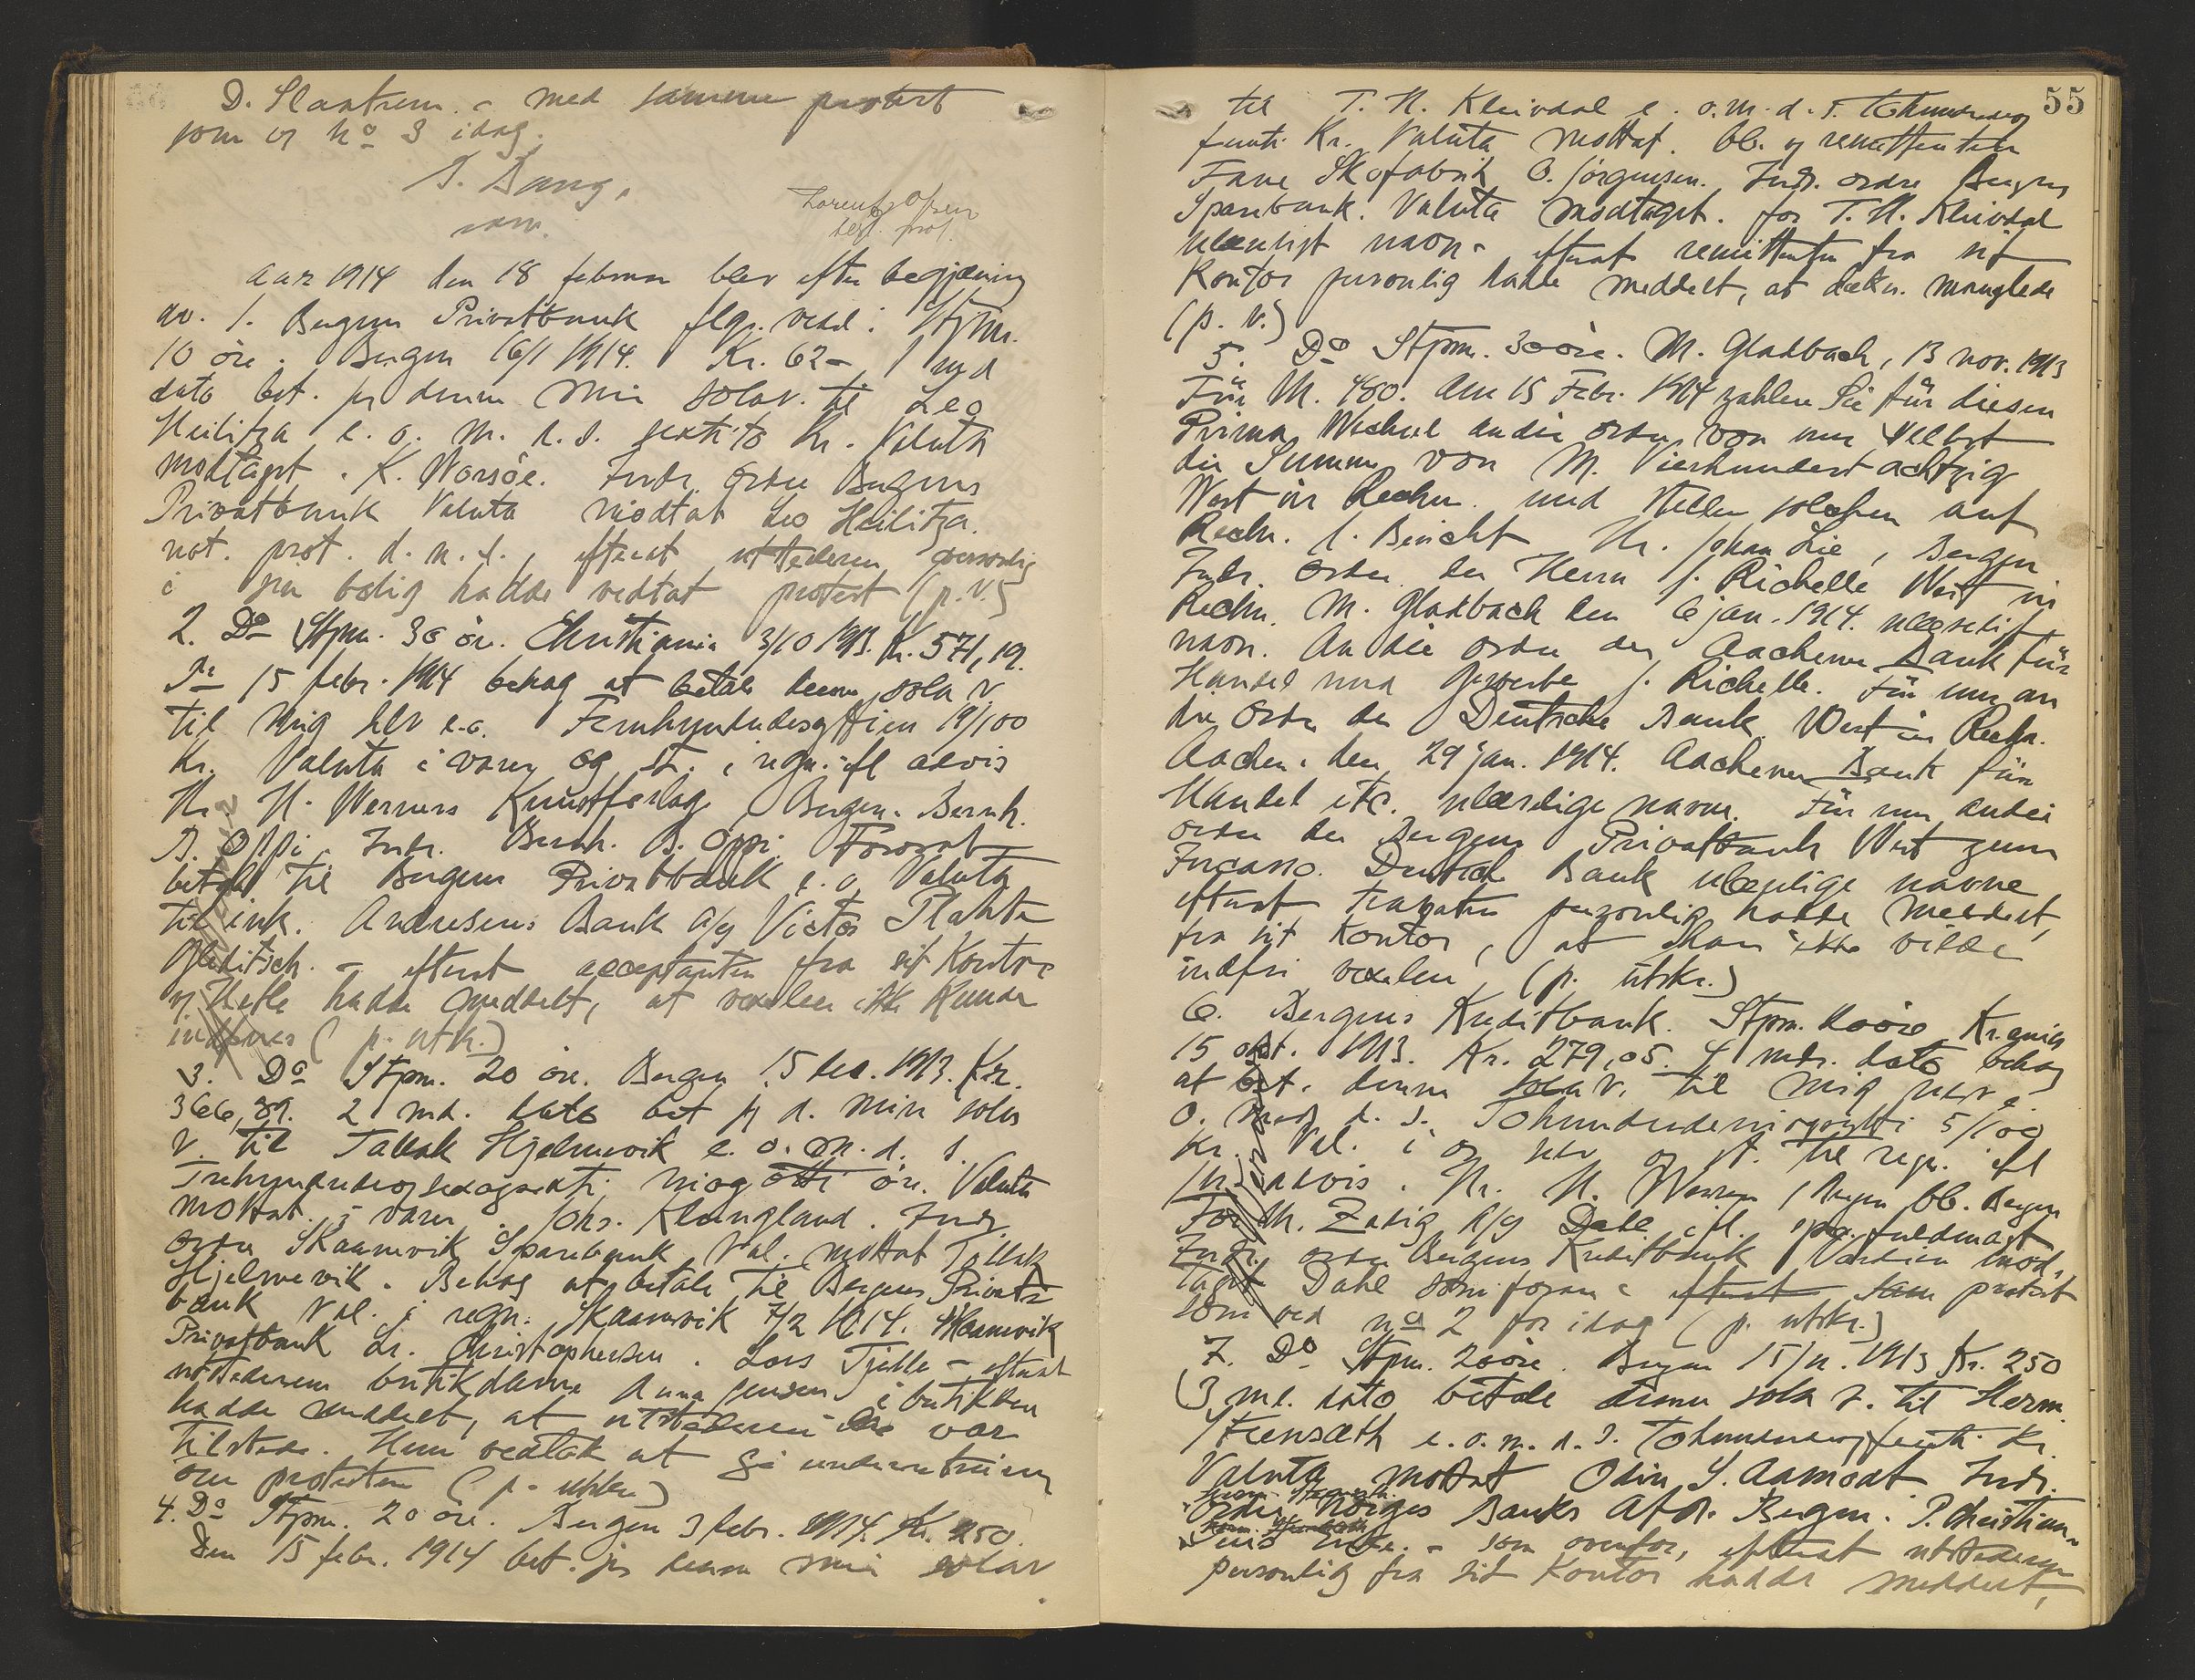 D. Slaatrem. - med samme protest
som og No 3 idag.
S. Bang,
Lorentz Olsen
Aar 1914 den 18 februar blev efter begjæring
av 1. Bergens Privatbank flg. vexel: Stpm.
10 øre. Bergen 16/1 1914. Kr. 62- 1 md
dato bet. jeg denne min solav. til Leo
Heilitza e. o. m. d. s. sextito Kr. Valuta
modtaget. K. Worsöe. Indr. ordre Bergens
Privatbank Valuta modtat Leo Heilitza.
not. prot. d. n. s., efterat utstederen personlig
i sin bolig hadde vedtat protest (p.V.)
2. Do Stpm. 30 øre. Christiania 3/10 1913. Kr. 571,19.
Pr 15 febr. 1914 behag at betale denne sola v
til mig selv e.o. Femhundredesyttien 19/100
Kr. Valuta i varer og st. i regn. ifl advis
Hr H. Werners Kunstforlag, Bergen. Bernh.
B. Oppi. Indr. Bernh. B. Oppi. Forovrat
betal til Bergens Privatbank e. o. Valuta
til ink. Andresens Bank A/S Victor Plahte
Gleditsch. - efterat acceptanten fra sit Kontor
og Hefte hadde meddelt, at vexelen ikke kunde
indfries (p. utk.)
3. Do Stpm. 20 øre. Bergen 15 des. 1913. Kr.
366,89. 2 md. dato bet jeg d. min sola
V. til Tallak Hjelmevik e. o. m. d. s.
Trehundredeogsexogsexti, niogotti øre. Valuta
mottat i varer. Johs. Klungland. Indr.
ordre Skaanevik Sparebank Val. mottat Tallak
Hjelmevik. Behag at betale til Bergens Privat-
bank Val. i regn. Skaanevik 7/2 1914. Skaanevik
Privatbank Lr. Christophersen. Lars Tjelle - efterat
utstederens butikdame Anna Jensen i butikken
hadde meddelt, at utstederen ikke var
tilstede. Hun vedtok at gi underretning
om protesten (p. utskr.)
4. Do Stpm. 20 øre. Bergen 3 febr. 1914. Kr. 250.
Den 15 febr. 1914 bet. jeg denne min solav
55
til T. H. Kleivdal e. o. m. d. s. Tohundreog
femti Kr. Valuta mottat. bl. og remittenten
Fane Skofabrik O. Jörgensen. Indr. ordre Bergens
Sparebank. Valuta modtaget. for T. H. Kleivdal
ulæseligt navn - efterat remittenten fra sit
Kontor personlig hadde meddelt, at dækn. manglede
(p. V.)
5. Do Stpm. 30 øre. M. Gladbach, 13 nov. 1913
Für M. 480. Am 15 Febr. 1914 zahlen Sie für diesen
Prima Wechsel an die order von mir selbst
die Summe von M. Vierhundertachtzig
Wert in Rechn. und stellen solchen auf
Rechn. l. Bericht Hr. Johan Lie, Bergen
Indr. Order der Herrn J. Richelle Wert in
Rechn. M. Gladbach den 6 jan. 1914. ulæselig
navn. An die ordre der Aachener Bank für
Handel und Gewerbe J. Richelle. Für uns an
die Order der Deutsche Bank. Wert in Rechn.
Aachen, den 29 jan. 1914. Aachener Bank für
Handel etc. ulæselige navne. Für uns an die
order der Bergens Privatbank Wert zum
Incasso. Deutsche Bank ulæselige navne
efterat trasaten personlig hadde meddelt,
fra sit Kontor, at han ikke vilde
indfri vexelen (p. utskr.)
6. Bergens Kreditbank. Stpm. 20 øre Kr.ania
15 okt. 1913. Kr. 279,05. 4 mdr. dato behag
at bet. denne sola v. til mig selv e.
o. med d. s. Tohundredenisyvtti 5/100
Kr. Val. i og selv og st. til regn. ifl
advis. Hr. H. Werner, Bergen bl. Bergen
For M. Zadig A/S Dahl ifl. spec. fuldmagt
Indr. ordre Bergens Kreditbank Værdien mod-
taget Dahl som foran - efterat som protest
som ved no 2 for idag (p. utskr.)
7. Do Stpm. 20 øre. Bergen 15/11. 1913 Kr. 250
3 md. dato betale denne sola v. til Herm.
Stensæth e. o. m. d. s. Tohundreogfemti Kr.
Valuta mottat Odin S. Aamodt. Indr.
Herm. Stensæth.
Ordre Norges Banks Afd. Bergen. P. Christian-
- som ovenfor, efterat utstederen
personlig fra sit Kontor hadde meddelt,